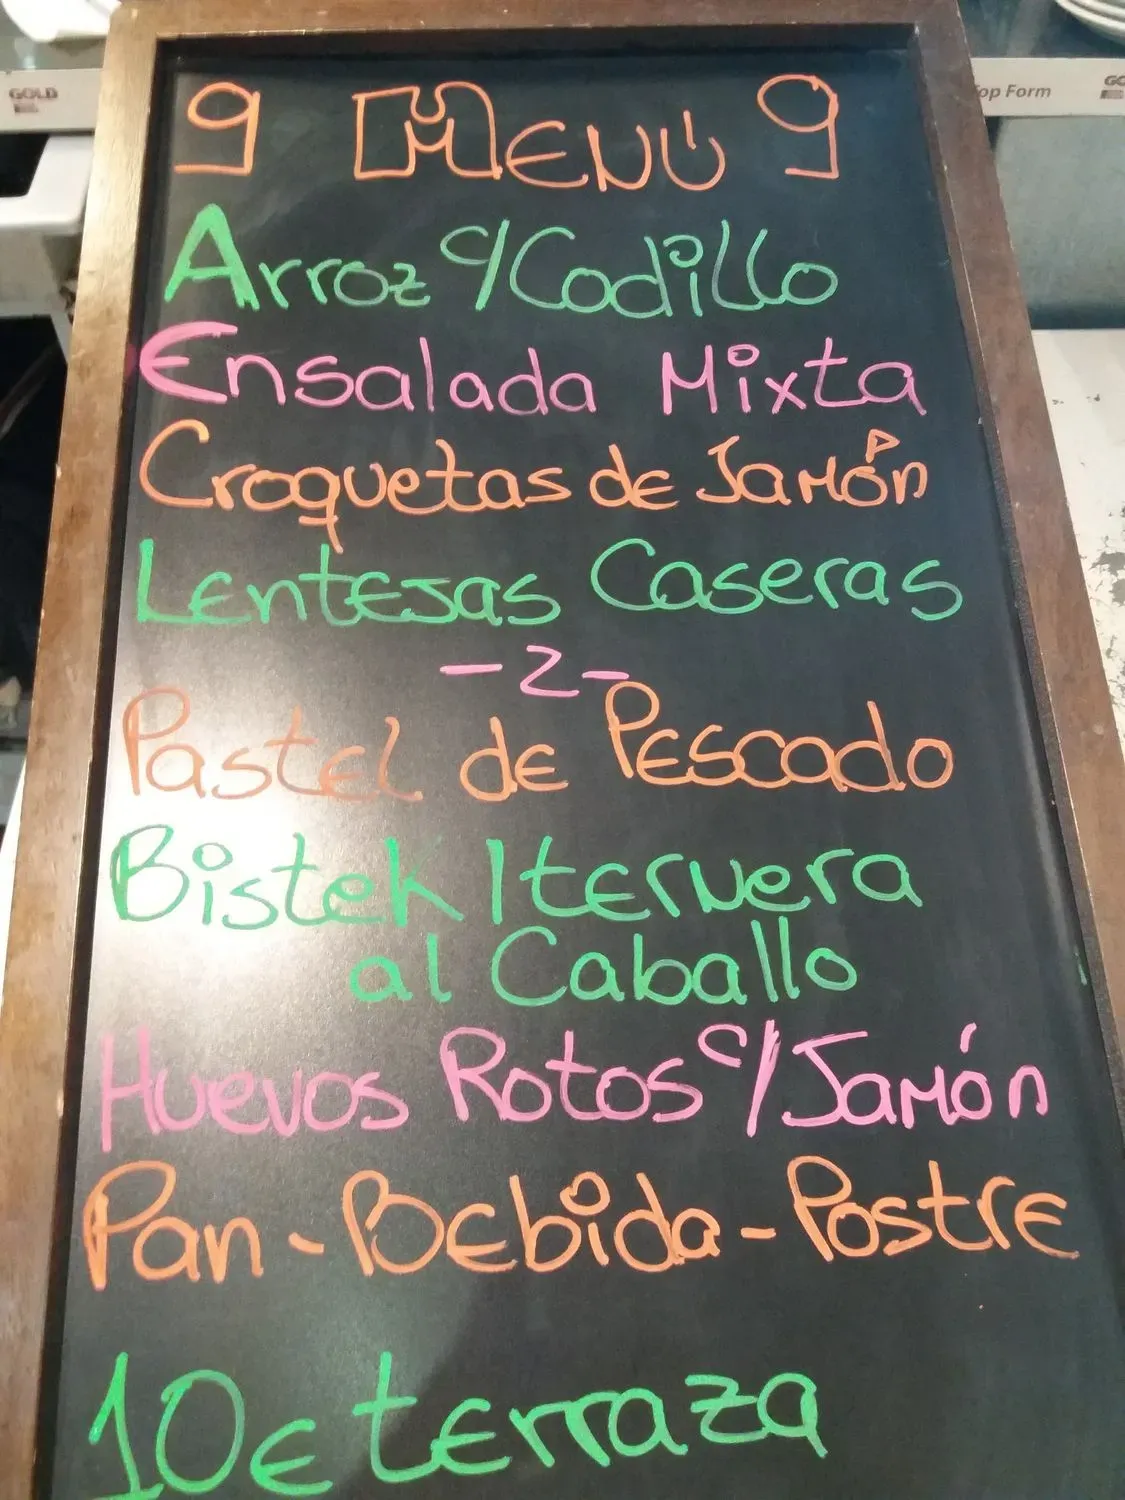 GOLD
Top Form
GO
9 MENÚ 9
Arroz c/Codillo
Ensalada Mixta
Croquetas de Jamón
Lentejas Caseras
-2-
Pastel de Pescado
Bistek / ternera
al Caballo
Huevos Rotos c/Jamón
Pan-Bebida-Postre
10€ terraza